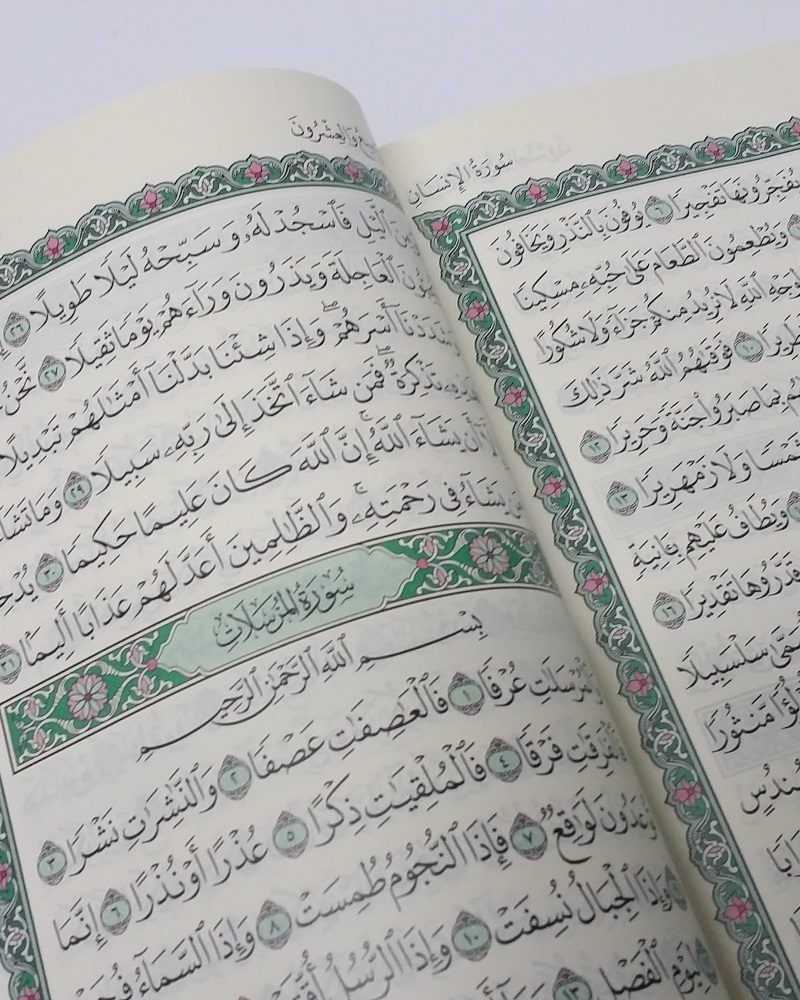 سُورَةُ الإِنسَان
تَفْجِيرًا ٦ يُوفُونَ بِٱلنَّذْرِ وَيَخَافُونَ
وَيُطْعِمُونَ ٱلطَّعَامَ عَلَىٰ حُبِّهِۦ مِسْكِينًا
لِوَجْهِ ٱللَّهِ لَا نُرِيدُ مِنكُمْ جَزَآءً وَلَا شُكُورًا
١٠ فَوَقَىٰهُمُ ٱللَّهُ شَرَّ ذَٰلِكَ
بِمَا صَبَرُوا۟ جَنَّةً وَحَرِيرًا ١٢
شَمْسًا وَلَا زَمْهَرِيرًا ١٣
وَيُطَافُ عَلَيْهِم بِـَٔانِيَةٍ
قَدَّرُوهَا تَقْدِيرًا ١٦
سَلْسَبِيلًا
لُؤْلُؤًا مَّنثُورًا
سُندُسٍ
وَالعِشْرُونَ
ٱلَّيْلِ فَٱسْجُدْ لَهُۥ وَسَبِّحْهُ لَيْلًا طَوِيلًا ٢٦
ٱلْعَاجِلَةَ وَيَذَرُونَ وَرَآءَهُمْ يَوْمًا ثَقِيلًا ٢٧ نَّحْنُ
وَشَدَدْنَآ أَسْرَهُمْ ۖ وَإِذَا شِئْنَا بَدَّلْنَآ أَمْثَٰلَهُمْ تَبْدِيلًا
تَذْكِرَةٌ ۖ فَمَن شَآءَ ٱتَّخَذَ إِلَىٰ رَبِّهِۦ سَبِيلًا ٢٩ وَمَا تَشَآ
أَن يَشَآءَ ٱللَّهُ ۚ إِنَّ ٱللَّهَ كَانَ عَلِيمًا حَكِيمًا ٣٠ يُدْخِ
يَشَآءُ فِى رَحْمَتِهِۦ ۚ وَٱلظَّٰلِمِينَ أَعَدَّ لَهُمْ عَذَابًا أَلِيمًۢا ٣١
سُورَةُ المُرْسَلَاتِ
بِسْمِ ٱللَّهِ ٱلرَّحْمَٰنِ ٱلرَّحِيمِ
وَٱلْمُرْسَلَٰتِ عُرْفًا ١ فَٱلْعَٰصِفَٰتِ عَصْفًا ٢ وَٱلنَّٰشِرَٰتِ نَشْرًا ٣
فَٱلْفَٰرِقَٰتِ فَرْقًا ٤ فَٱلْمُلْقِيَٰتِ ذِكْرًا ٥ عُذْرًا أَوْ نُذْرًا ٦ إِنَّمَا
تُوعَدُونَ لَوَٰقِعٌ ٧ فَإِذَا ٱلنُّجُومُ طُمِسَتْ ٨ وَإِذَا ٱلسَّمَآءُ فُرِجَتْ
وَإِذَا ٱلْجِبَالُ نُسِفَتْ ١٠ وَإِذَا ٱلرُّسُلُ أُقِّتَتْ
لِيَوْمِ ٱلْفَصْلِ ١٣